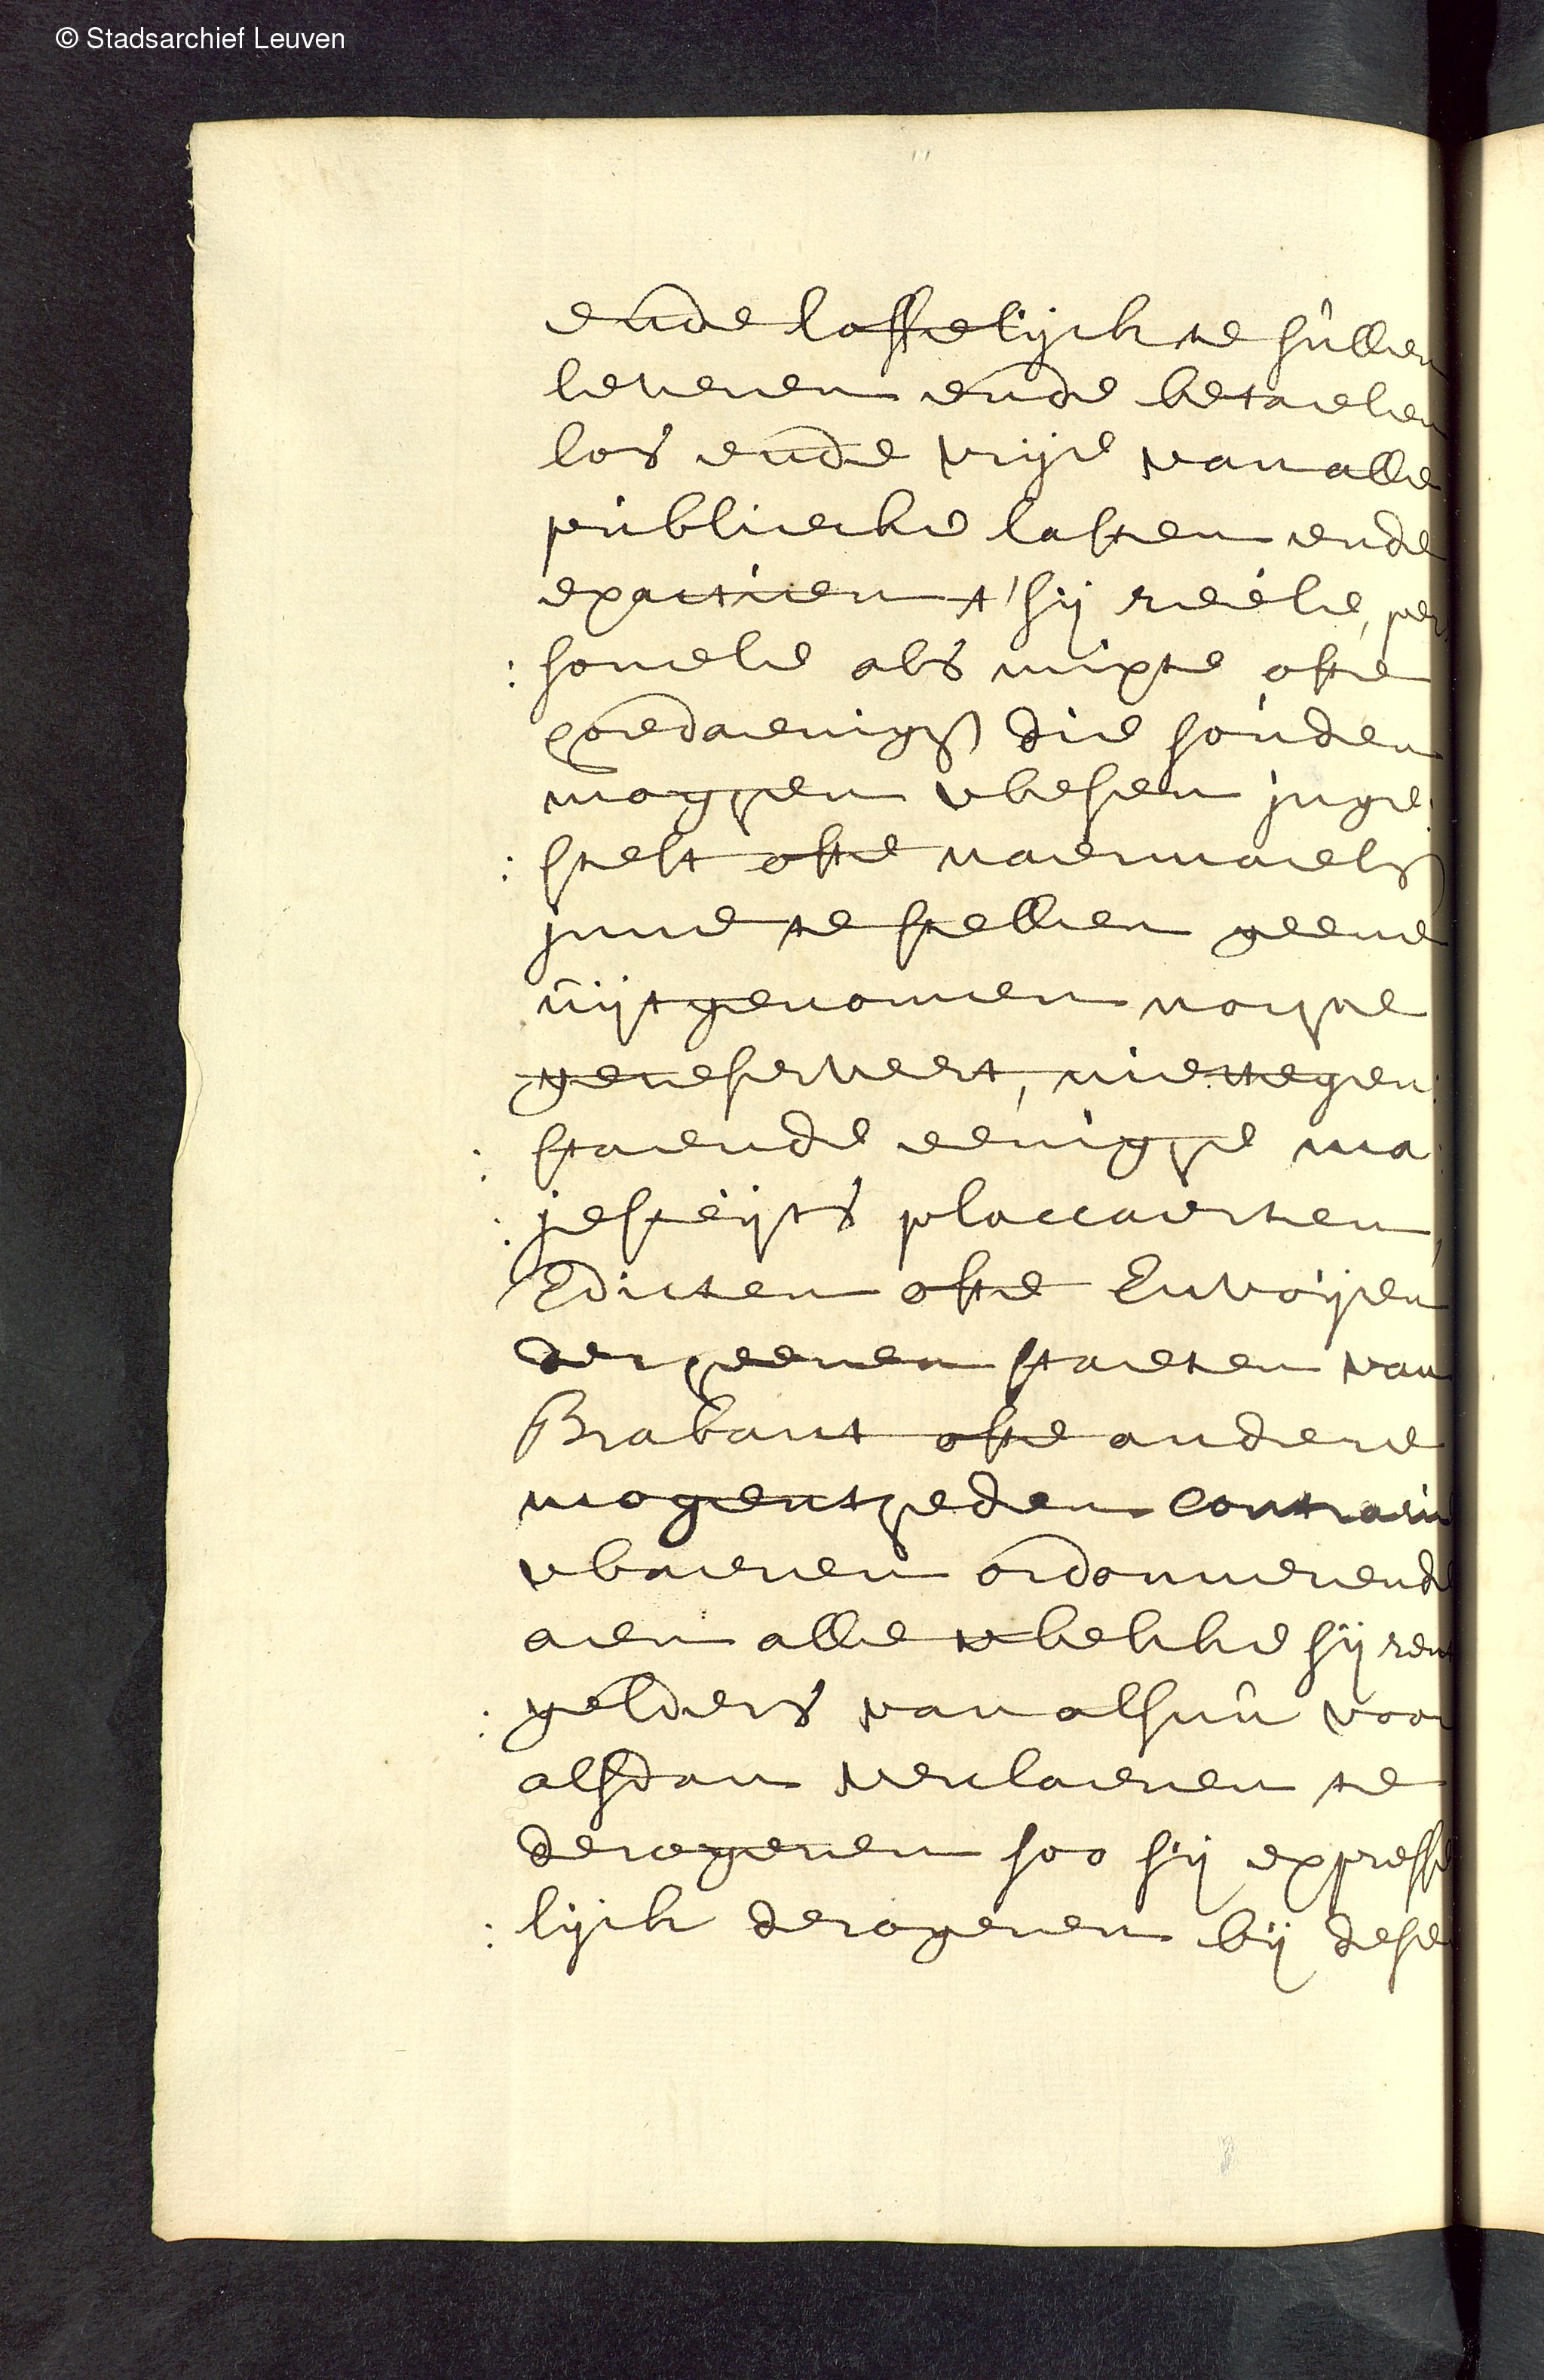 © Stadsarchief Leuven
ende loffelijck te sullen
leveren ende betaelen
los ende vrije van alle
publiecke lasten ende
exactien t'sij reële, per
: sonele als mixte ofte
hoedaenigh die souden
moghen wesen inge:
: stelt ofte naermaels
inne te stellen geene
uijtgenomen nochte
gereserveert, niettegen:
: staende eenighe ma:
: jesteijts placcaerten,
Edicten ofte Envoijen
der heeren staeten van
Brabant ofte andere
mogentheden contrarie
waeren ordonnerende
aen alle welcke sij rent
: gelders van alsnu voor
alsdan verclaeren te
derogeren soo sij expresse
: lijck derogeren bij dese